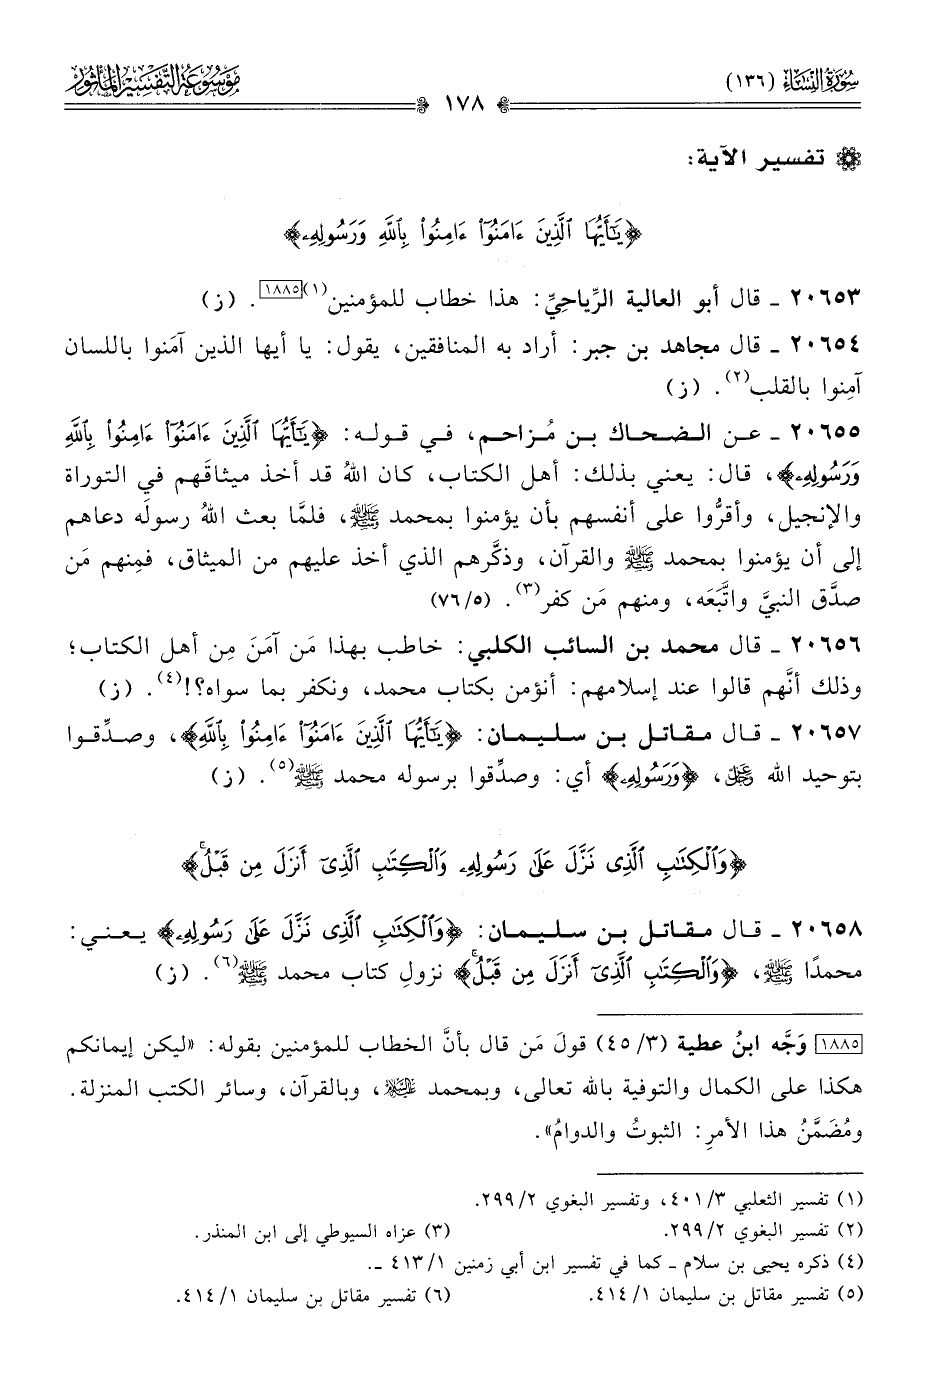 سُورَةُ النِّسَاءِ (١٣٦)
مَوْسُوعَةُ التَّفْسِيرِ المَأْثُور
١٧٨
تفسير الآية:
﴿يَٰٓأَيُّهَا ٱلَّذِينَ ءَامَنُوٓا۟ ءَامِنُوا۟ بِٱللَّهِ وَرَسُولِهِۦ﴾
٢٠٦٥٣ ـ قال أبو العالية الرِّياحِيِّ: هذا خطاب للمؤمنين(١)[١٨٨٥]. (ز)
٢٠٦٥٤ ـ قال مجاهد بن جبر: أراد به المنافقين، يقول: يا أيها الذين آمَنوا باللسان
آمِنوا بالقلب(٢). (ز)
٢٠٦٥٥ ـ عن الضحاك بن مُزاحم، في قوله: ﴿يَٰٓأَيُّهَا ٱلَّذِينَ ءَامَنُوٓا۟ ءَامِنُوا۟ بِٱللَّهِ
وَرَسُولِهِۦ﴾، قال: يعني بذلك: أهل الكتاب، كان اللهُ قد أخذ ميثاقَهم في التوراة
والإنجيل، وأقرُّوا على أنفسهم بأن يؤمنوا بمحمد ﷺ، فلمَّا بعث اللهُ رسولَه دعاهم
إلى أن يؤمنوا بمحمد ﷺ والقرآن، وذكَّرهم الذي أخذ عليهم من الميثاق، فمِنهم مَن
صدَّق النبيَّ واتَّبَعَه، ومنهم مَن كفر(٣). (٧٦/٥)
٢٠٦٥٦ ـ قال محمد بن السائب الكلبي: خاطب بهذا مَن آمَنَ مِن أهل الكتاب؛
وذلك أنَّهم قالوا عند إسلامهم: أنؤمن بكتاب محمد، ونكفر بما سواه؟!(٤). (ز)
٢٠٦٥٧ ـ قال مقاتل بن سليمان: ﴿يَٰٓأَيُّهَا ٱلَّذِينَ ءَامَنُوٓا۟ ءَامِنُوا۟ بِٱللَّهِ﴾، وصدِّقوا
بتوحيد الله عَزَّوَجَلَّ، ﴿وَرَسُولِهِۦ﴾ أي: وصدِّقوا برسوله محمد ﷺ(٥). (ز)
﴿وَٱلْكِتَٰبِ ٱلَّذِى نَزَّلَ عَلَىٰ رَسُولِهِۦ وَٱلْكِتَٰبِ ٱلَّذِىٓ أَنزَلَ مِن قَبْلُ ۚ﴾
٢٠٦٥٨ ـ قال مقاتل بن سليمان: ﴿وَٱلْكِتَٰبِ ٱلَّذِى نَزَّلَ عَلَىٰ رَسُولِهِۦ﴾ يعني:
محمدًا ﷺ، ﴿وَٱلْكِتَٰبِ ٱلَّذِىٓ أَنزَلَ مِن قَبْلُ ۚ﴾ نزولِ كتاب محمد ﷺ(٦). (ز)
[١٨٨٥] وَجَّه ابنُ عطية (٤٥/٣) قولَ مَن قال بأنَّ الخطاب للمؤمنين بقوله: «ليكن إيمانكم
هكذا على الكمال والتوفية بالله تعالى، وبمحمد عليه السلام، وبالقرآن، وسائر الكتب المنزلة.
ومُضَمَّنُ هذا الأمرِ: الثبوتُ والدوامُ».
(١) تفسير الثعلبي ٤٠١/٣، وتفسير البغوي ٢٩٩/٢.
(٢) تفسير البغوي ٢٩٩/٢. (٣) عزاه السيوطي إلى ابن المنذر.
(٤) ذكره يحيى بن سلام ـ كما في تفسير ابن أبي زمنين ٤١٣/١ ـ.
(٥) تفسير مقاتل بن سليمان ٤١٤/١. (٦) تفسير مقاتل بن سليمان ٤١٤/١.